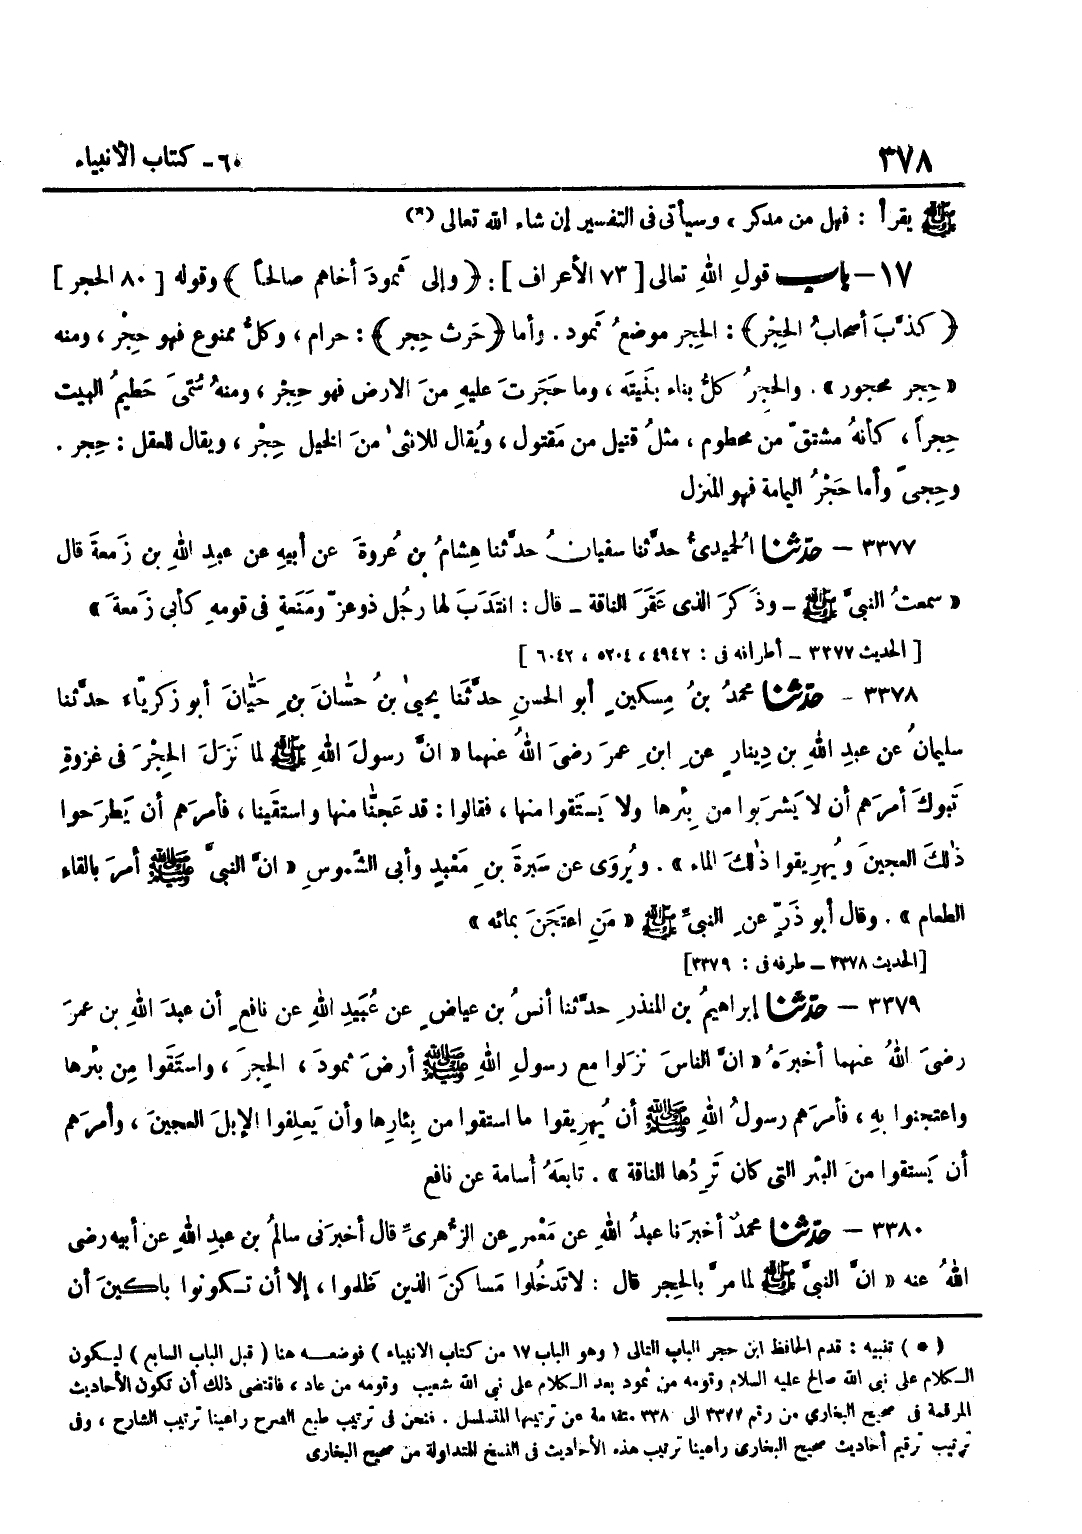 ٣٧٨ ٦٠ - كتاب الأنبياء
ﷺ يقرأ : فهل من مدكر ، وسيأتى فى التفسير إن شاء الله تعالى (*)
١٧ - باب قولِ اللهِ تعالى [ ٧٣ الأعراف ] : ﴿ وإلى ثمودَ أخاهم صالحاً ﴾ وقوله [ ٨٠ الحجر ]
﴿ كذَّبَ أصحابُ الحِجْر ﴾ : الحِجر موضعُ ثمود . وأما ﴿ حَرث حِجر ﴾ : حرام ، وكلُّ ممنوع فهو حِجْر ، ومنه
« حِجر محجور » . والحِجرُ كلُّ بناء بنَيتَه ، وما حَجَرتَ عليهِ منَ الارض فهو حِجْر ، ومنهُ سُمَّىَ حَطيمُ البيت
حِجراً ، كأنهُ مشتقّ من محطوم ، مثلُ قتيل من مَقتول ، ويُقال للانثىٰ منَ الخيل حِجْر ، ويقال للعقل : حِجر .
وحِجىً وأما حَجْرُ اليمامة فهو المنزل
٣٣٧٧ - حدّثنا الحُميدىُّ حدَّثنا سفيانُ حدَّثنا هِشامُ بن عُروةَ عن أبيهِ عن عبدِ اللهِ بن زَمعةَ قال
« سمعتُ النبىَّ ﷺ - وذَكرَ الذى عَقَرَ الناقة - قال : انتَدَبَ لها رجُل ذو عزّ ومَنَعةٍ فى قومهِ كأبى زَمعةَ »
[ الحديث ٣٣٧٧ - أطرافه فى : ٤٩٤٢ ، ٥٢٠٤ ، ٦٠٤٢ ]
٣٣٧٨ - حدّثنا محمدُ بنُ مِسكينٍ أبو الحسنِ حدَّثَنا يحيىٰ بنُ حَسّانَ بنِ حَيّانَ أبو زكريّاءَ حدَّثنا
سليمانُ عن عبدِ اللهِ بن دِينارٍ عنِ ابنِ عمرَ رضىَ اللهُ عنهما « انَّ رسولَ اللهِ ﷺ لما نَزَلَ الحِجْرَ فى غزوةِ
تَبوكَ أمرَهم أن لا يَشرَبوا من بِئْرها ولا يَستَقوا منها ، فقالوا : قد عَجنّا منها واستقَينا ، فأمرَهم أن يَطرَحوا
ذٰلكَ العجينَ ويُهرِيقوا ذٰلكَ الماء » . ويُروَى عن سَبرةَ بنِ مَعْبدٍ وأبى الشَّموسِ « انَّ النبىَّ ﷺ أمرَ بالقاء
الطعام » . وقال أبو ذَرّ عنِ النبىِّ ﷺ « مَنِ اعتجَنَ بمائه »
[الحديث ٣٣٧٨ - طرفه فى : ٣٣٧٩]
٣٣٧٩ - حدّثنا إبراهيمُ بن المنذرِ حدَّثنا أنسُ بن عياضٍ عن عُبَيدِ اللهِ عن نافعٍ أن عبدَ اللهِ بن عمرَ
رضىَ اللهُ عنهما أخبرَهُ « انَّ الناسَ نزَلوا مع رسولِ اللهِ ﷺ أرضَ ثمودَ ، الحِجرَ ، واستَقَوا مِن بئرها
واعتجنوا بهِ ، فأمرَهم رسولُ اللهِ ﷺ أن يُهرِيقوا ما استقوا من بِئارِها وأن يَعلِفوا الإبلَ العجينَ ، وأمرَهم
أن يَستقوا منَ البئر التى كان تَرِدُها الناقة » . تابعَهُ أسامة عن نافع
٣٣٨٠ - حدّثنا محمدٌ أخبرَنا عبدُ اللهِ عن مَعْمرٍ عن الزُّهرىِّ قال أخبرَنى سالمُ بن عبدِ اللهِ عن أبيه رضى
اللهُ عنه « انَّ النبىَّ ﷺ لما مرَّ بالحِجر قال : لا تَدخُلوا مَساكنَ الذين ظَلموا ، إلا أن تكونوا باكينَ أن
( * ) تنبيه : قدم الحافظ ابن حجر الباب التالى ( وهو الباب ١٧ من كتاب الانبياء ) فوضعه هنا ( قبل الباب السابع ) ليكون
الكلام على نبى الله صالح عليه السلام وقومه من ثمود بعد الكلام على نبى الله شعيب وقومه من عاد ، فاقتضى ذلك أن تكون الأحاديث
المرقمة فى صحيح البخاري من رقم ٣٣٧٧ الى ٣٣٨٠ متقدمة عن ترتيبها المتسلسل . فنحن فى ترتيب طبع الشرح راعينا ترتيب الشارح ، وفى
ترتيب ترقيم أحاديث صحيح البخارى راعينا ترتيب هذه الأحاديث فى النسخ المتداولة من صحيح البخارى